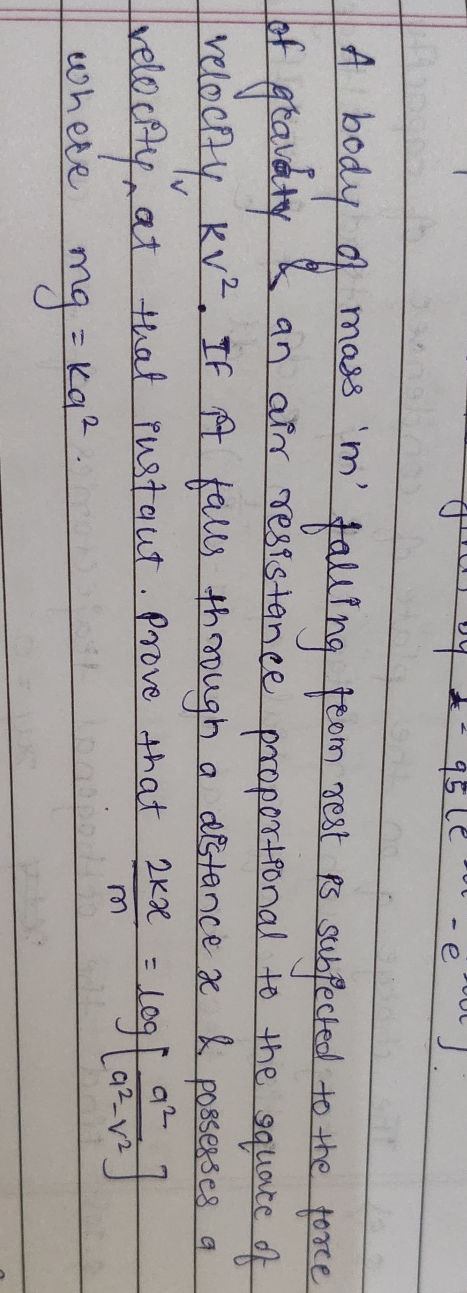 A body of mass 'm' falling from rest is subjected to the force
of gravity & an air resistance proportional to the square of
velocity Kv². If it falls through a distance x & possesses a
velocity v at that instant. Prove that 2Kx/m = log[a²/a²-v²]
where mg = Ka².